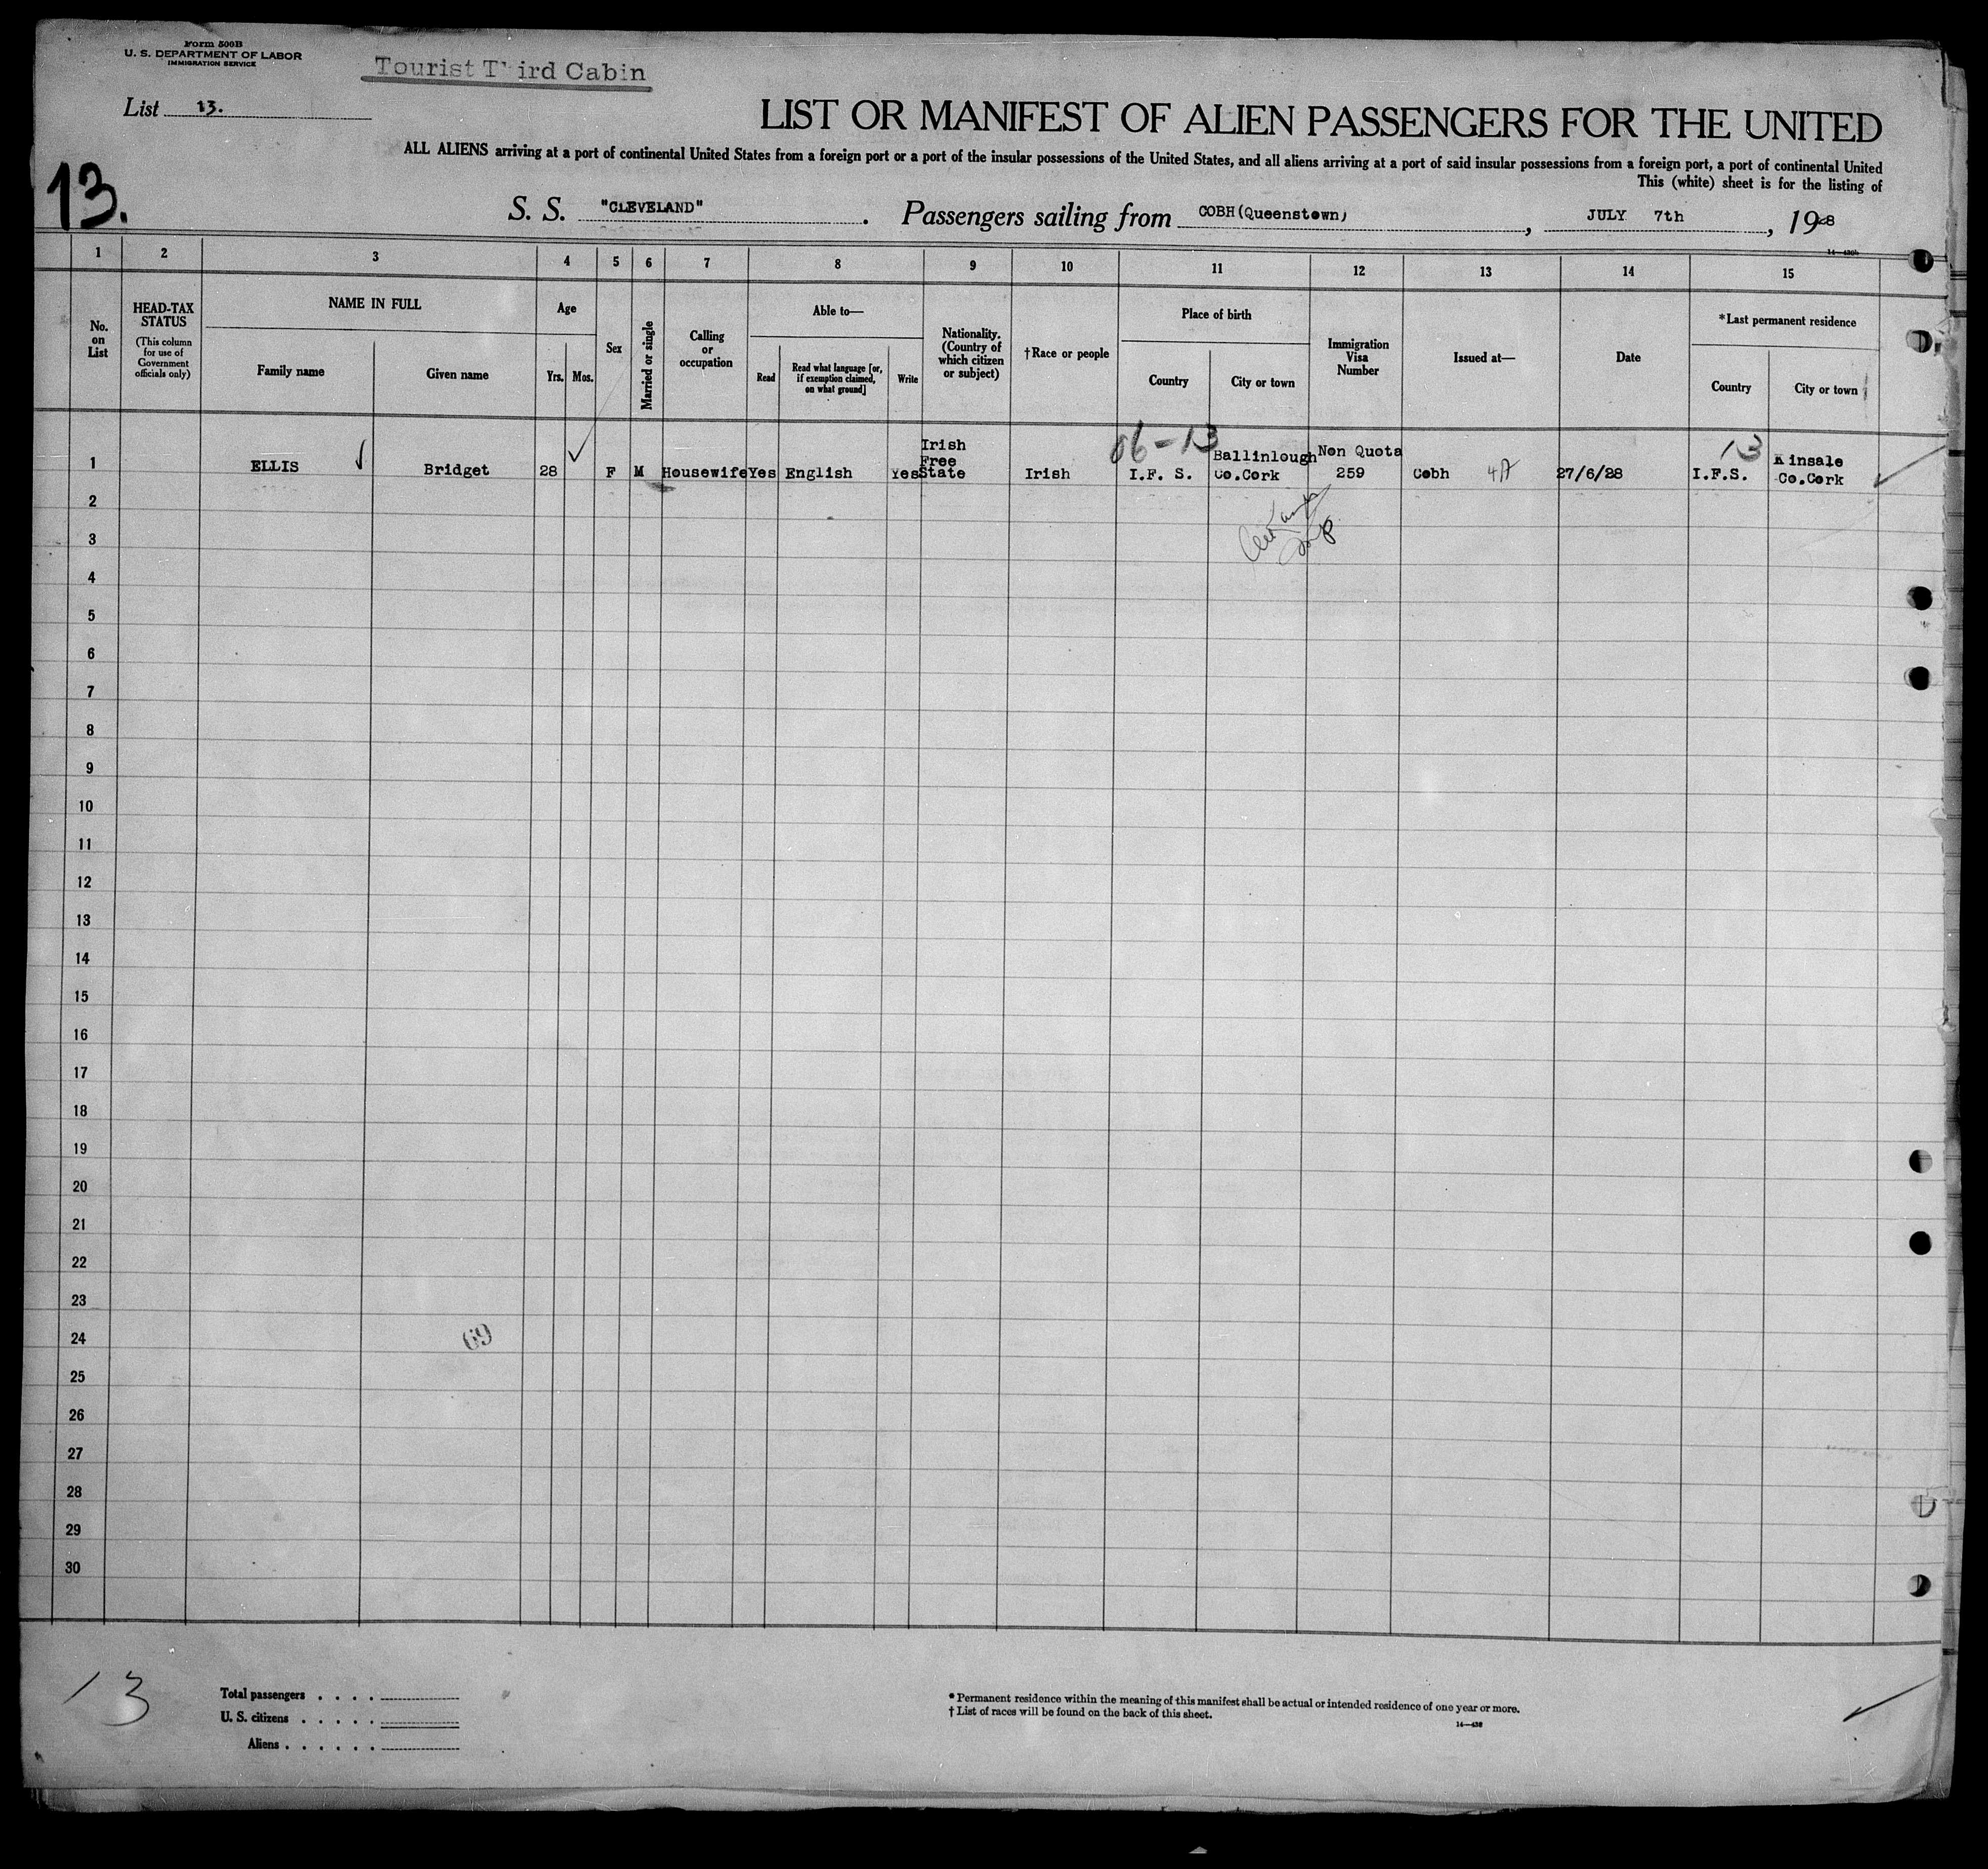 Form 500B
U. S. DEPARTMENT OF LABOR
IMMIGRATION SERVICE
Tourist Third Cabin
List 13.
LIST OR MANIFEST OF ALIEN PASSENGERS FOR THE UNITED
ALL ALIENS arriving at a port of continental United States from a foreign port or a port of the insular possessions of the United States, and all aliens arriving at a port of said insular possessions from a foreign port, a port of continental United
This (white) sheet is for the listing of
13.
S. S. "CLEVELAND". Passengers sailing from COBH(Queenstown), JULY 7th, 1928
1 2 3 4 5 6 7 8 9 10 11 12 13 14 15
No. on List
HEAD-TAX STATUS
(This column for use of Government officials only)
NAME IN FULL
Family name
Given name
Age
Yrs. Mos.
Sex
Married or single
Calling or occupation
Able to—
Read
Read what language [or, if exemption claimed, on what ground]
Write
Nationality. (Country of which citizen or subject)
†Race or people
Place of birth
Country
City or town
Immigration Visa Number
Issued at—
Date
*Last permanent residence
Country
City or town
06-13
13
1 ELLIS Bridget 28 F M Housewife Yes English Yes Irish Free State Irish I.F. S. Ballinlough Co.Cork Non Quota 259 Cobh 27/6/28 I.F.S. Kinsale Co.Cork
2
3
4
5
6
7
8
9
10
11
12
13
14
15
16
17
18
19
20
21
22
23
24
69
25
26
27
28
29
30
13
Total passengers . . . .
U. S. citizens . . . . .
Aliens . . . . . .
* Permanent residence within the meaning of this manifest shall be actual or intended residence of one year or more.
† List of races will be found on the back of this sheet.